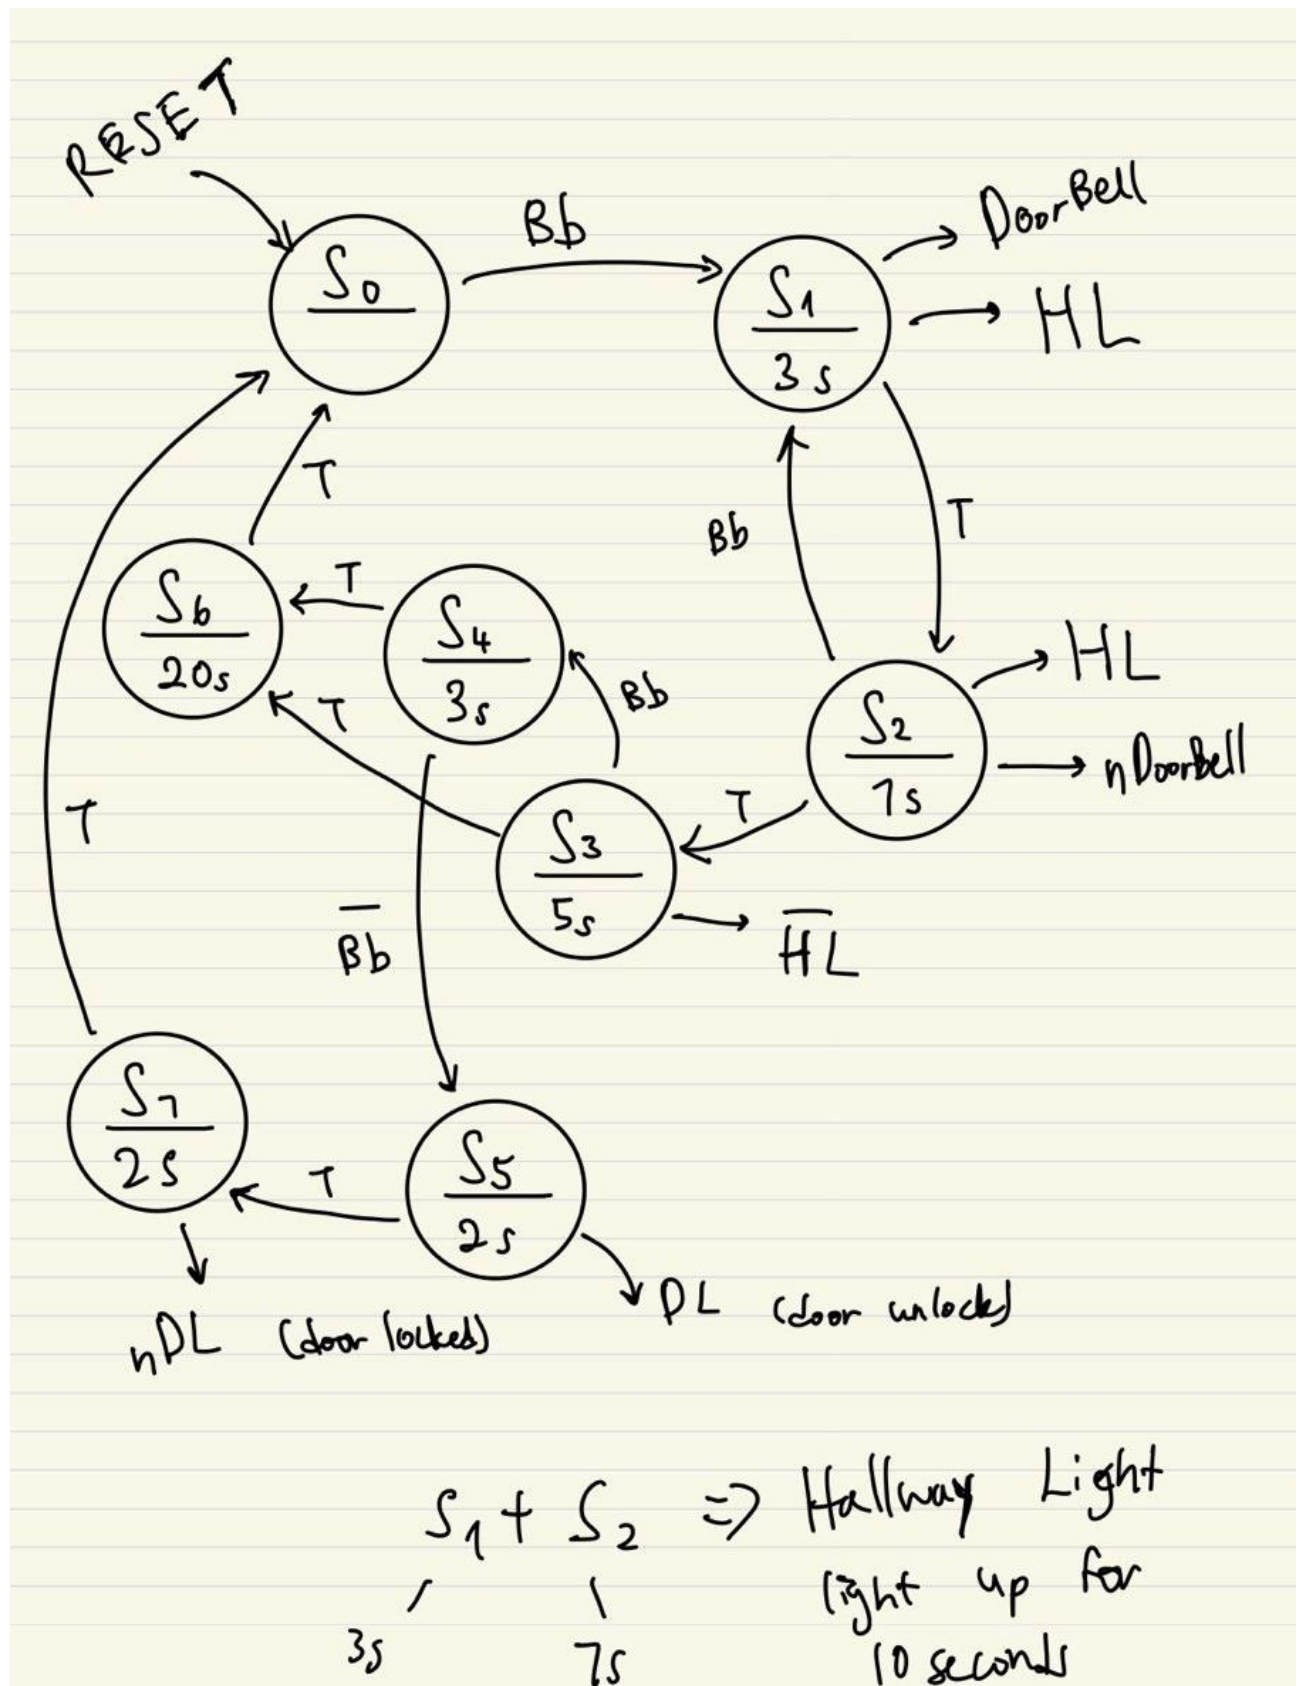 RESET
S0
Bb
S1
3s
DoorBell
HL
T
Bb
T
S6
20s
T
S4
3s
Bb
T
HL
S2
7s
nDoorbell
T
S3
5s
H̅L̅
T
B̅b̅
S7
2s
T
S5
2s
nDL (door locked)
DL (door unlock)
S1 + S2 => Hallway Light
light up for
3s 7s 10 seconds